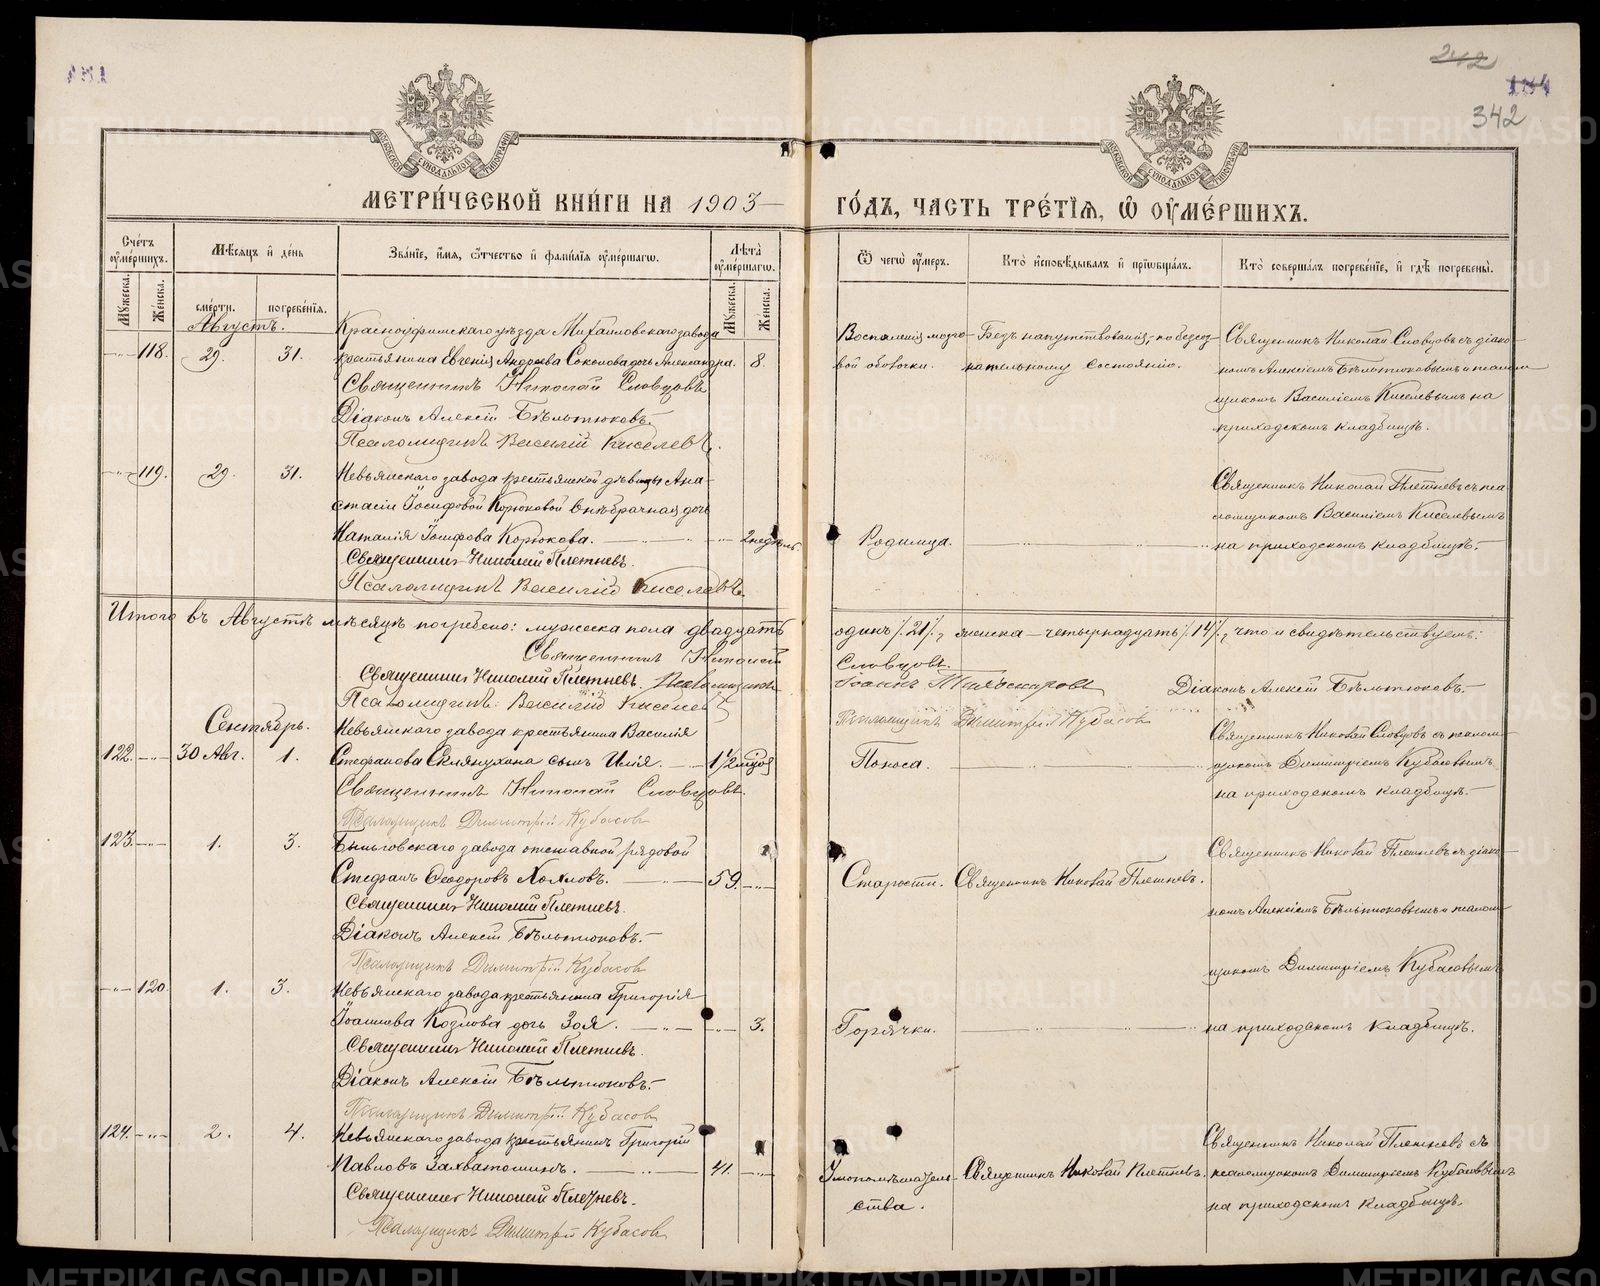 342
МЕТРИ́ЧЕСКОЙ КНИ́ГИ НА 1903 ГО́ДЪ, ЧАСТЬ ТРЕ́ТЇѦ, Ѡ ОУ҆МЕ́РШИХЪ.
Сче́тъ оу҆ме́ршихъ.
Мꙋжеска.
Же́нска.
Мѣ́сѧцъ и҆ де́нь
сме́рти.
погребе́нїѧ.
Зва́нїе, и҆́мѧ, ѻ҆́тчество и҆ фами́лїѧ оу҆ме́ршагѡ.
Лѣ́та оу҆ме́ршагѡ.
Мꙋжеска.
Же́нска.
Ѿ чегѡ̀ оу҆́меръ.
Кто̀ и҆сповѣ́дывалъ и҆ прїѡбща́лъ.
Кто̀ соверша́лъ погребе́нїе, и҆ гдѣ̀ погребены̀.
Августъ.
118. 29. 31. Красноуфимскаго уѣзда Михайловскаго завода
крестьянина Евгенія Андреева Соколова дочь Александра. 8.
Священникъ Николай Словцовъ
Діаконъ Алексій Бѣльтюковъ.
Псаломщикъ Василій Киселевъ.
Воспаленія мозго-
вой оболочки.
Безъ напутствованія, по безсоз-
нательному состоянію.
Священникъ Николай Словцовъ съ діако-
номъ Алексіемъ Бѣльтюковымъ и псалом-
щикомъ Василіемъ Киселевымъ на
приходскомъ кладбищѣ.
119. 29. 31. Невьянскаго завода крестьянской дѣвицы Ана-
стасіи Іосифовой Корюковой внѣбрачная дочь
Наталія Іосифова Корюкова. 2 недѣль
Священникъ Николай Плетневъ.
Псаломщикъ Василій Киселевъ.
Родимца.
Священникъ Николай Плетневъ съ пса-
ломщикомъ Василіемъ Киселевымъ
на приходскомъ кладбищѣ.
Итого въ Августѣ мѣсяцѣ погребено: мужеска пола двадцать одинъ /21/, женска – четырнадцать /14/, что и свидѣтельствуемъ:
Священникъ Николай Словцовъ.
Священникъ Николай Плетневъ.
Діаконъ Алексій Бѣльтюковъ.
Псаломщикъ Василій Киселевъ
Псаломщикъ Димитрій Кубасовъ
Сентябрь.
122. 30 Авг. 1. Невьянскаго завода крестьянина Василія
Стефанова Склянухина сынъ Илія. 1½
Священникъ Николай Словцовъ.
Псаломщикъ Димитрій Кубасовъ
Поноса.
Священникъ Николай Словцовъ съ псалом-
щикомъ Димитріемъ Кубасовымъ
на приходскомъ кладбищѣ.
123. 1. 3. Быньговскаго завода отставной рядовой
Стефанъ Ѳеодоровъ Хохловъ. 59.
Священникъ Николай Плетневъ.
Діаконъ Алексій Бѣльтюковъ.
Псаломщикъ Димитрій Кубасовъ
Старости. Священникъ Николай Плетневъ.
Священникъ Николай Плетневъ съ діако-
номъ Алексіемъ Бѣльтюковымъ и псалом-
щикомъ Димитріемъ Кубасовымъ
120. 1. 3. Невьянскаго завода крестьянина Григорія
Іоаннова Козлова дочь Зоя. 3.
Священникъ Николай Плетневъ.
Діаконъ Алексій Бѣльтюковъ.
Псаломщикъ Димитрій Кубасовъ
Горячки.
на приходскомъ кладбищѣ.
124. 2. 4. Невьянскаго завода крестьянинъ Григорій
Павловъ Захватошинъ. 41.
Священникъ Николай Плетневъ.
Псаломщикъ Димитрій Кубасовъ
Умопомѣшатель-
ства.
Священникъ Николай Плетневъ.
Священникъ Николай Плетневъ съ
псаломщикомъ Димитріемъ Кубасовымъ
на приходскомъ кладбищѣ.
METRIKI.GASO-URAL.RU